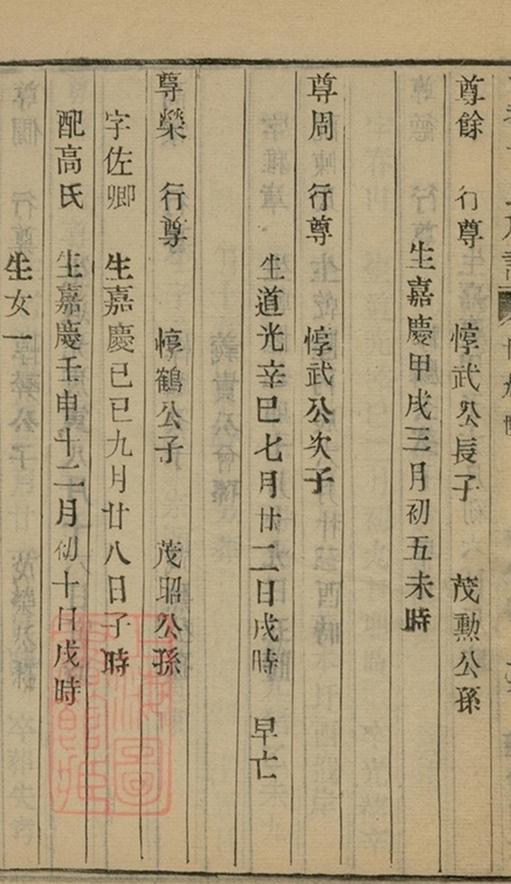 尊餘 行尊 惇武公長子 茂勳公孫
生嘉慶甲戌三月初五未時
尊周 行尊 惇武公次子
生道光辛巳七月廿二日戌時 早亡
尊榮 行尊 惇鶴公子 茂昭公孫
字佐卿 生嘉慶己巳九月廿八日子時
配高氏 生嘉慶壬申十二月初十日戌時
生女一